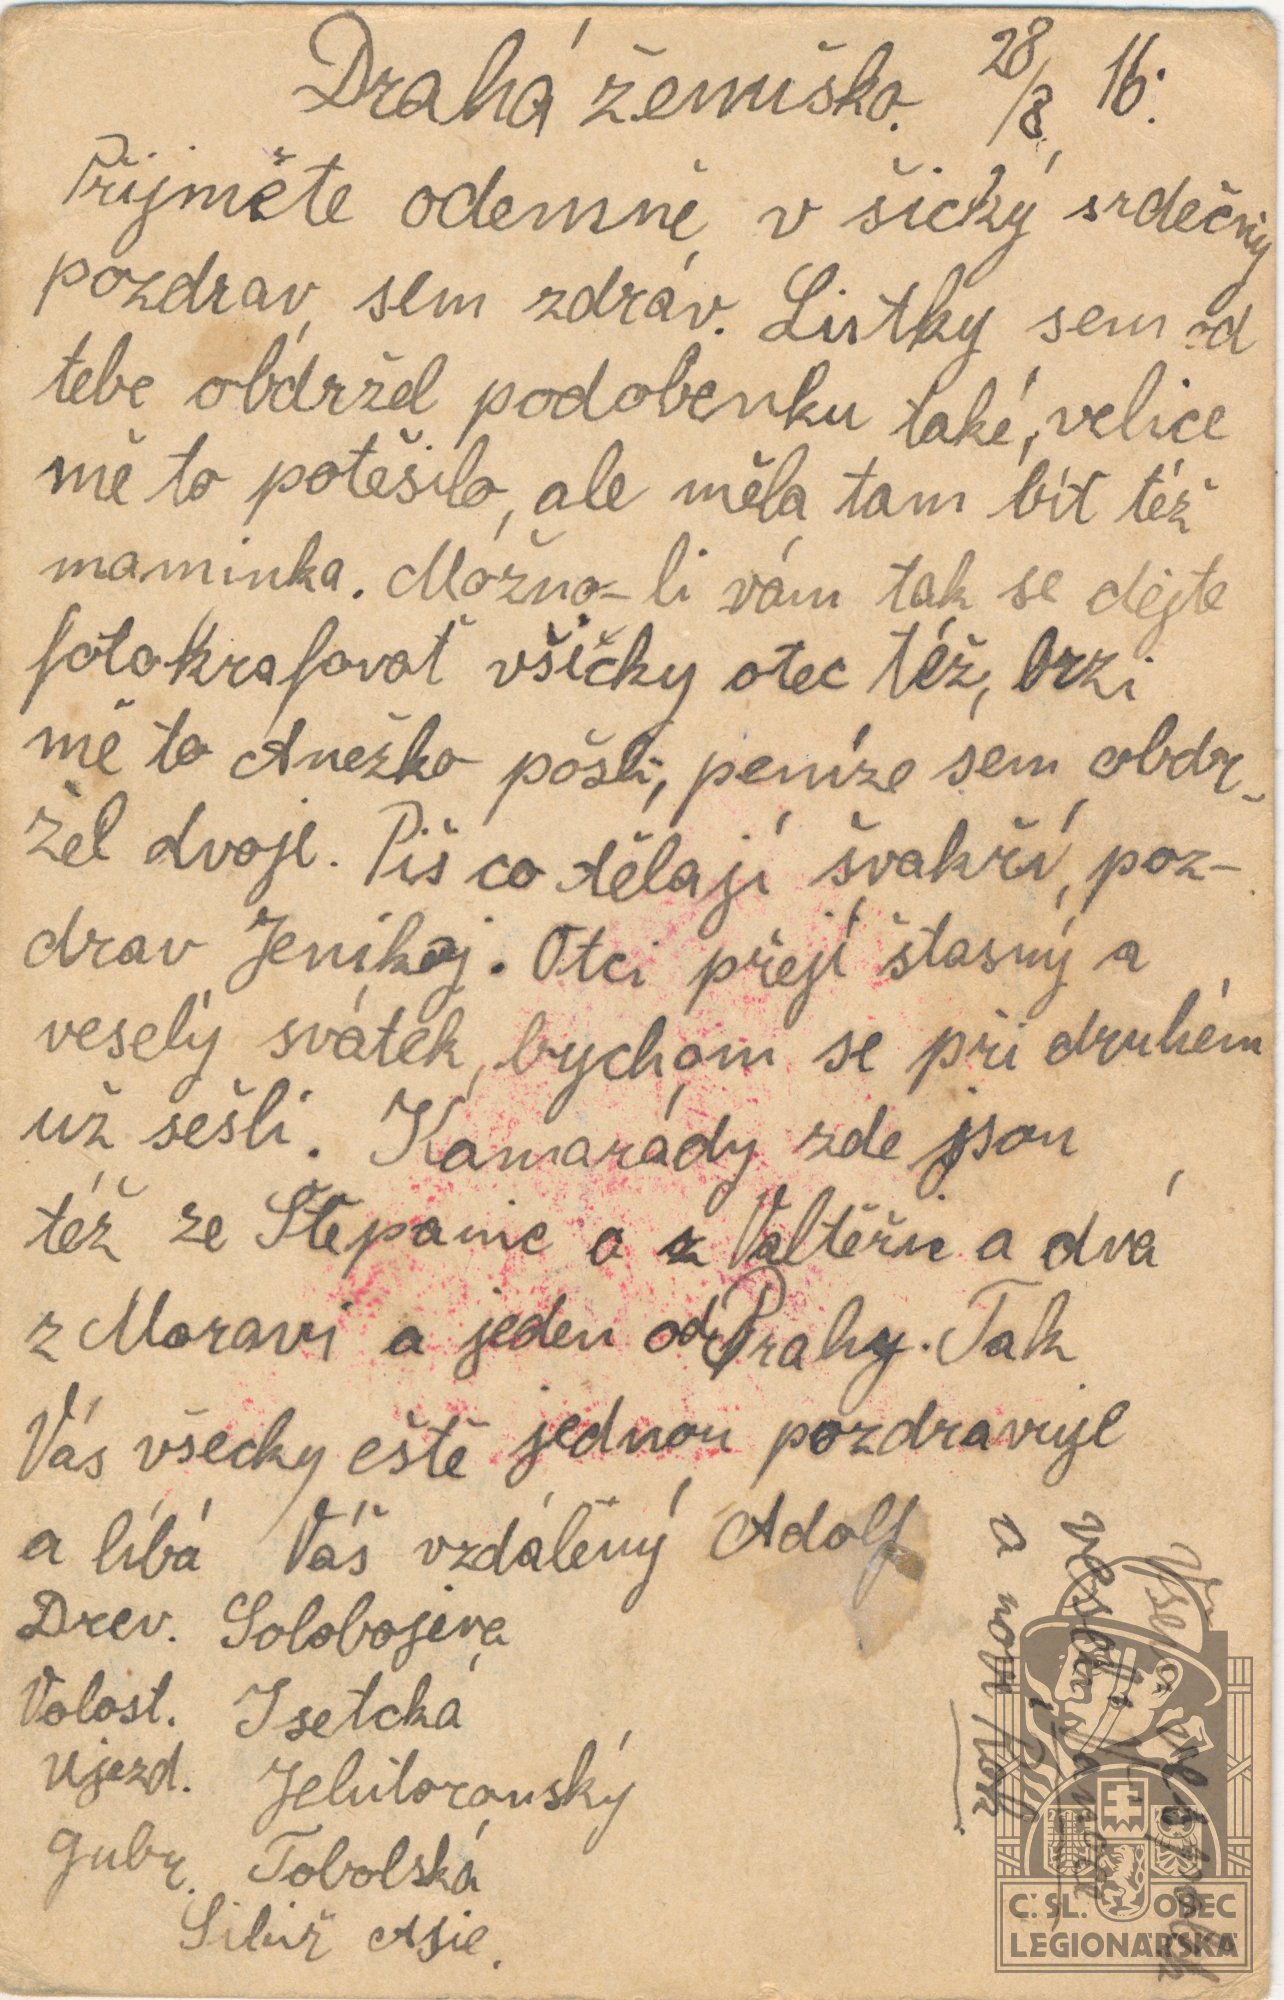 Drahá ženuško. 28/8 16.
Přijměte odemně v šický srdečný
pozdrav, sem zdráv. Listky sem od
tebe obdržel podobenku také, velice
mě to potěšilo, ale měla tam bít též
maminka. Možno-li vám tak se dejte
fotokrafovat všičky otec též, brzi
mě to Anežko pošli, peníze sem obdr-
žel dvoje. Piš co dělají švakři, poz-
drav Jenikoj. Otci přeji štasný a
veselý svátek, bychom se při druhém
už sešli. Kamarády zde jsou
též ze Štěpanic a z Valtěřic a dvá
z Moravi a jeden od Prahy. Tak
Vás všecky eště jednou pozdravuje
a líbá Váš vzdálený Adolf
Drev. Solobojeva
Volost. Isetcká
Ujezd. Jelutorouský
Gubr. Tobolská
Sibiř Asie.
veselí
a noví rok
C.SL. OBEC
LEGIONÁŘSKÁ